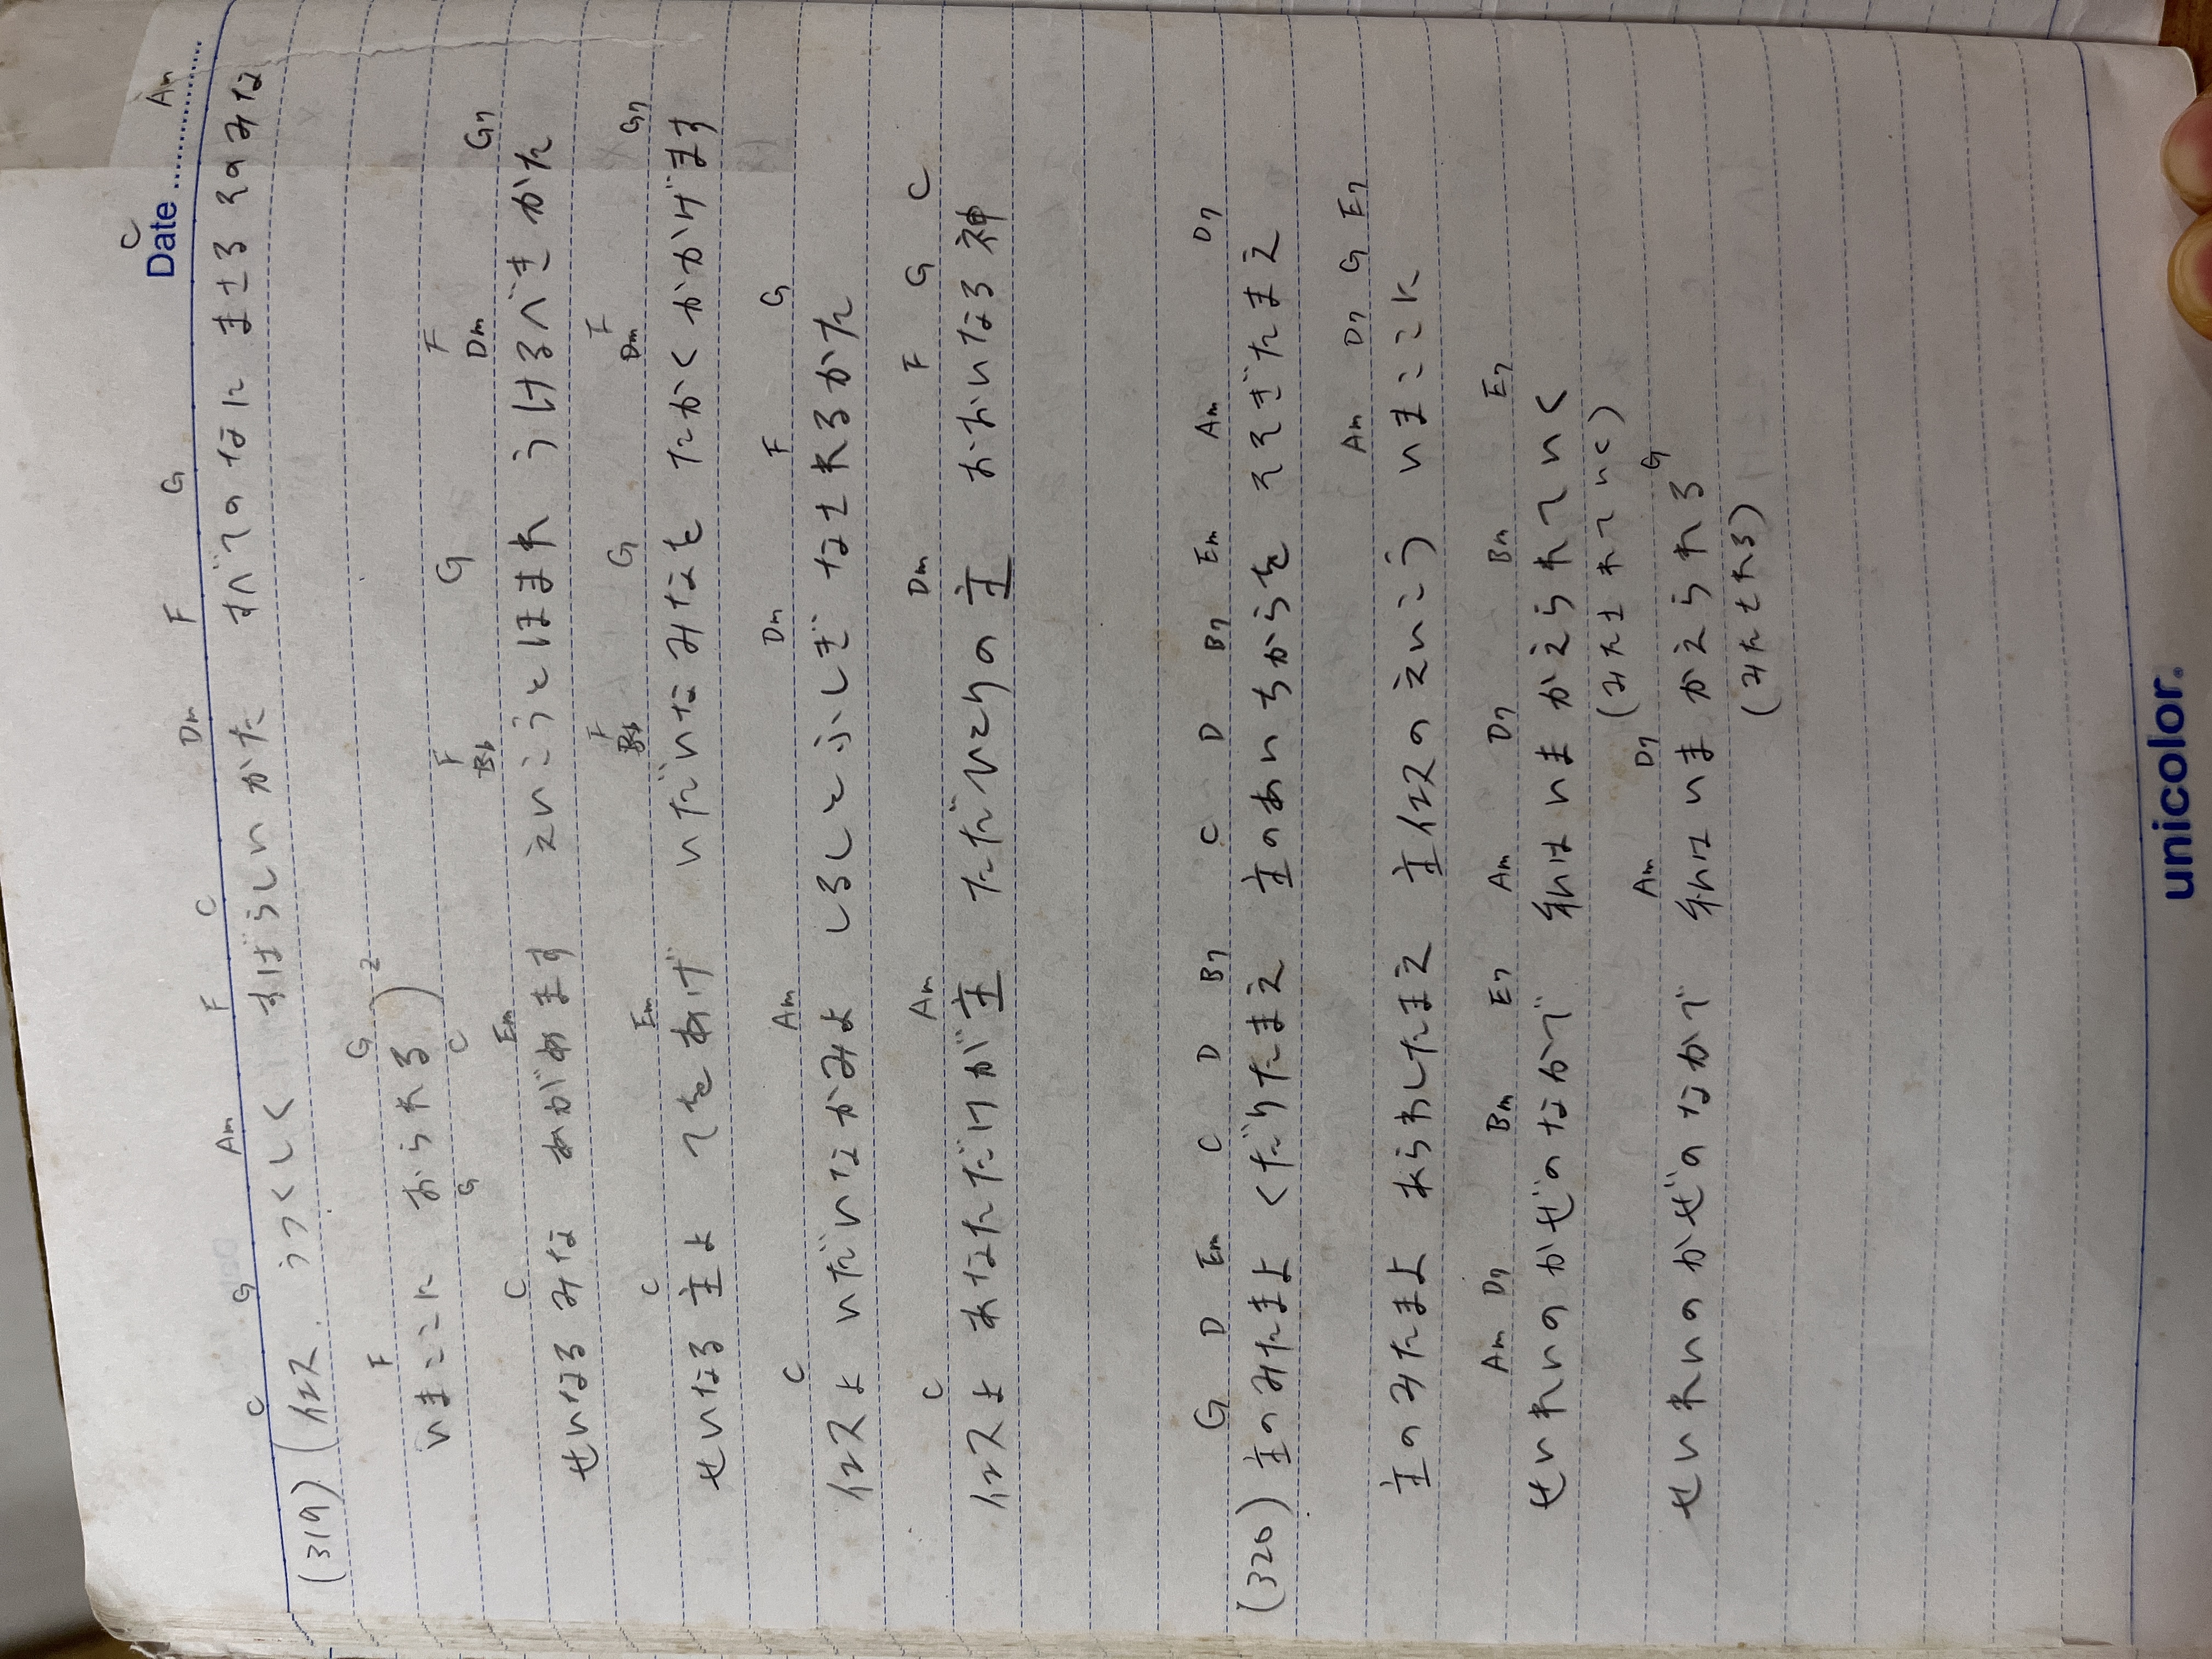 Date
C G Am F C Dm F G C Am
(319) (イエス うつくしく すばらしいかた すべてのなに まさるそのみな
F G
いまここに おられる)2
G C F G F
C Em Bb Dm G7
せいなるみな あがめます えいこうとほまれ うけるべきかた
F G F
C Em Bb Dm G7
せいなる主よ てをあげ いだいなみなを たかくかかげます
C Am Dm F G
イエスよ いだいなかみよ しるしとふしぎ なされるかた
C Am Dm F G C
イエスよ あなただけが主 ただひとりの主 おおいなる神
G D Em C D B7 C D B7 Em Am D7
(320) 主のみたまよ くだりたまえ 主のあいちからを そそぎたまえ
Am D7 G E7
主のみたまよ あらわしたまえ 主イエスのえいこう いまここに
Am D7 Bm E7 Am D7 Bm E7
せいれいのかぜのなかで 私はいまかえられていく
(みたされていく)
Am D7 G
せいれいのかぜのなかで 私はいまかえられる
(みたされる)
unicolor.